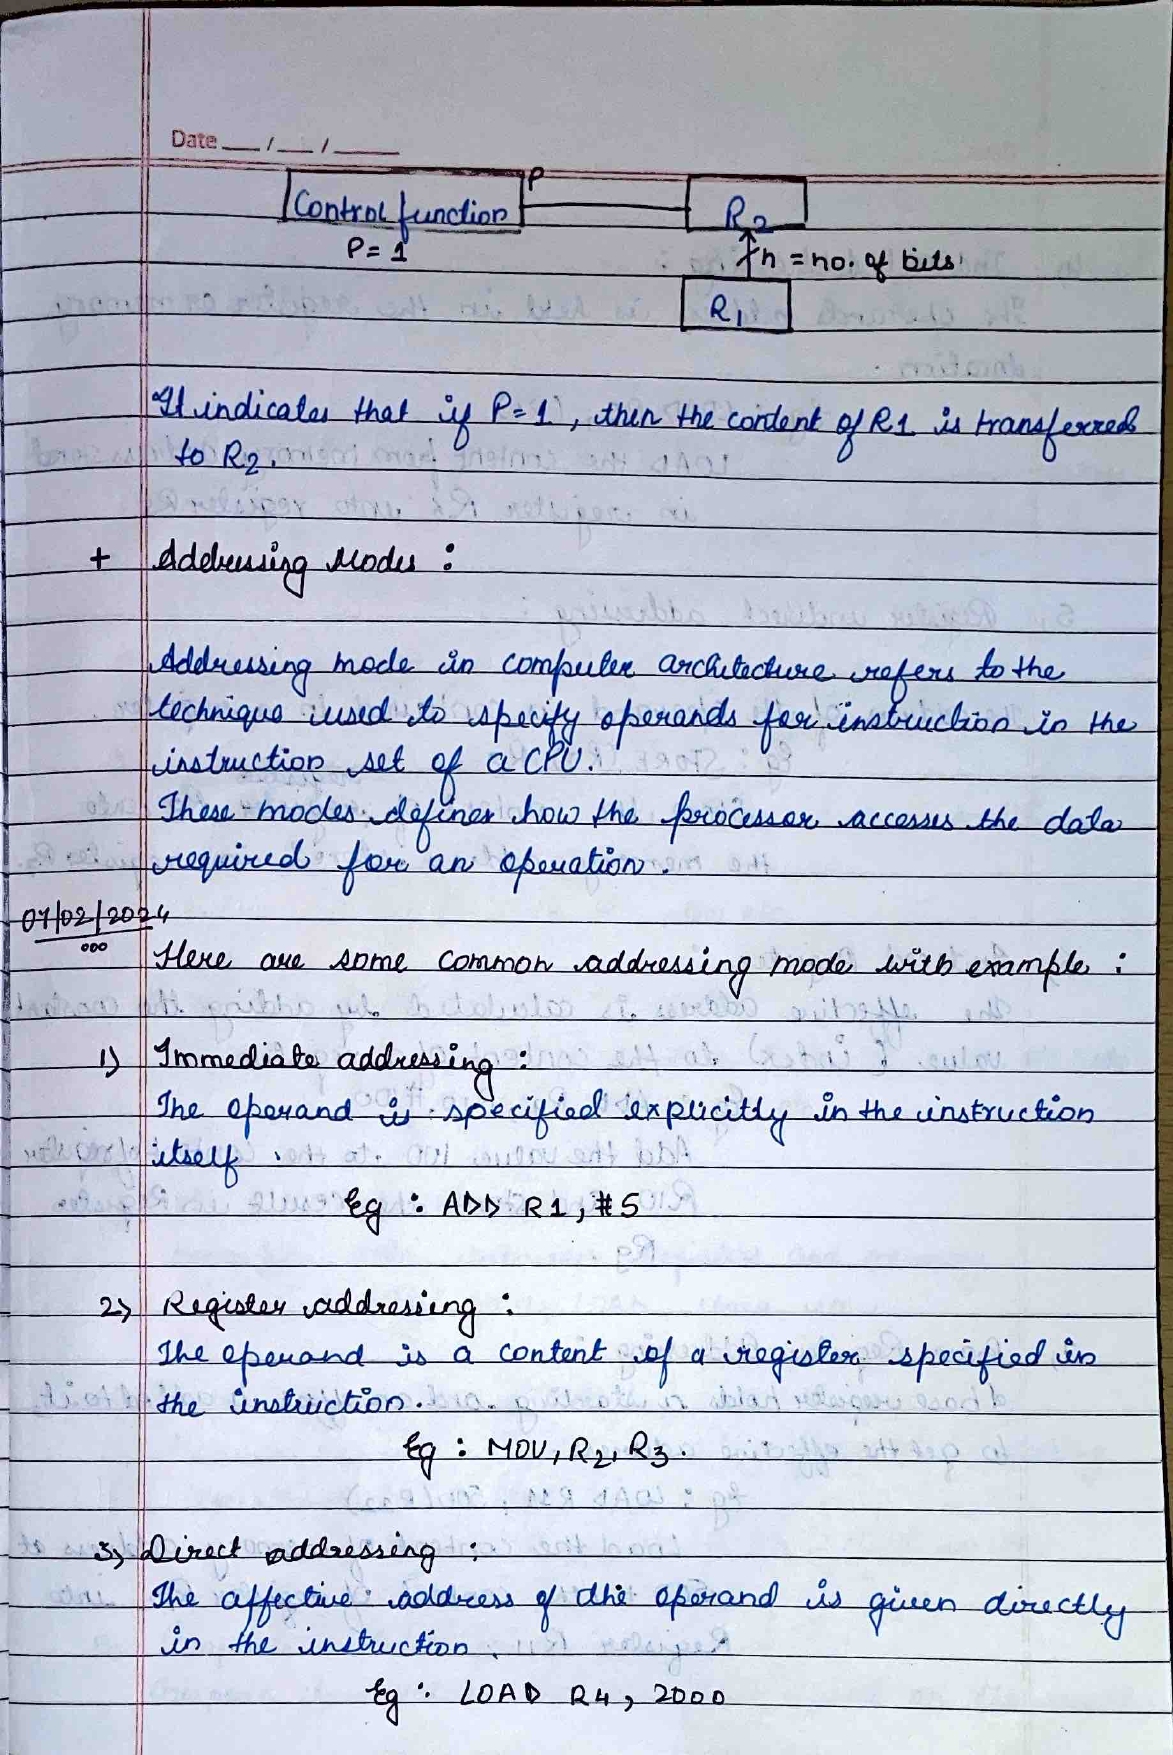 Date __/__/____
Control function
P
R2
P = 1
n = no. of bits
R1
It indicates that if P=1, then the content of R1 is transferred
to R2.
+ Addressing Modes :
Addressing mode in computer architecture refers to the
technique used to specify operands for instruction in the
instruction set of a CPU.
These modes defines how the processor accesses the data
required for an operation.
07/02/2024
Here are some common addressing mode with example :
1) Immediate addressing :
The operand is specified explicitly in the instruction
itself.
Eg : ADD R1, #5
2) Register addressing :
The operand is a content of a register specified in
the instruction.
Eg : MOV, R2, R3.
3) Direct addressing :
The affective address of the operand is given directly
in the instruction.
Eg : LOAD R4, 2000